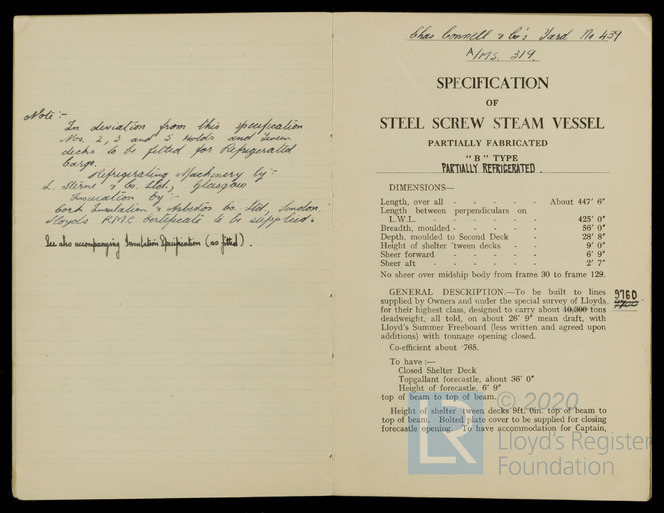 Note :-
In deviation from this specification
Nos. 2, 3 and 5 Holds and Tween
decks to be fitted for Refrigerated
Cargo.
Refrigerating Machinery by :-
L. Sterne & Co. Ltd., Glasgow
Insulation by :-
Cork Insulation & Asbestos Co. Ltd, London
Lloyds R.M.C. Certificate to be supplied.
See also accompanying Insulation Specification (as fitted).
Chas Connell & Co's Yard No 439
A/MS. 319.
SPECIFICATION
OF
STEEL SCREW STEAM VESSEL
PARTIALLY FABRICATED
"B" TYPE
PARTIALLY REFRIGERATED.
DIMENSIONS—
Length, over all - - - - - About 447' 6"
Length between perpendiculars on
L.W.L. - - - - - - 425' 0"
Breadth, moulded - - - - - 56' 0"
Depth, moulded to Second Deck - - 28' 8"
Height of shelter 'tween decks - - 9' 0"
Sheer forward - - - - - 6' 9"
Sheer aft - - - - - - 2' 7"
No sheer over midship body from frame 30 to frame 129.
GENERAL DESCRIPTION.—To be built to lines
supplied by Owners and under the special survey of Lloyds
for their highest class, designed to carry about 10,300 tons
9760
deadweight, all told, on about 26' 9" mean draft, with
Lloyd's Summer Freeboard (less written and agreed upon
additions) with tonnage opening closed.
Co-efficient about ·765.
To have :—
Closed Shelter Deck
Topgallant forecastle, about 36' 0"
Height of forecastle, 6' 9"
top of beam to top of beam.
Height of shelter 'tween decks 9ft. 0in. top of beam to
top of beam. Bolted plate cover to be supplied for closing
forecastle opening. To have accommodation for Captain,
LR
© 2020
Lloyd's Register
Foundation